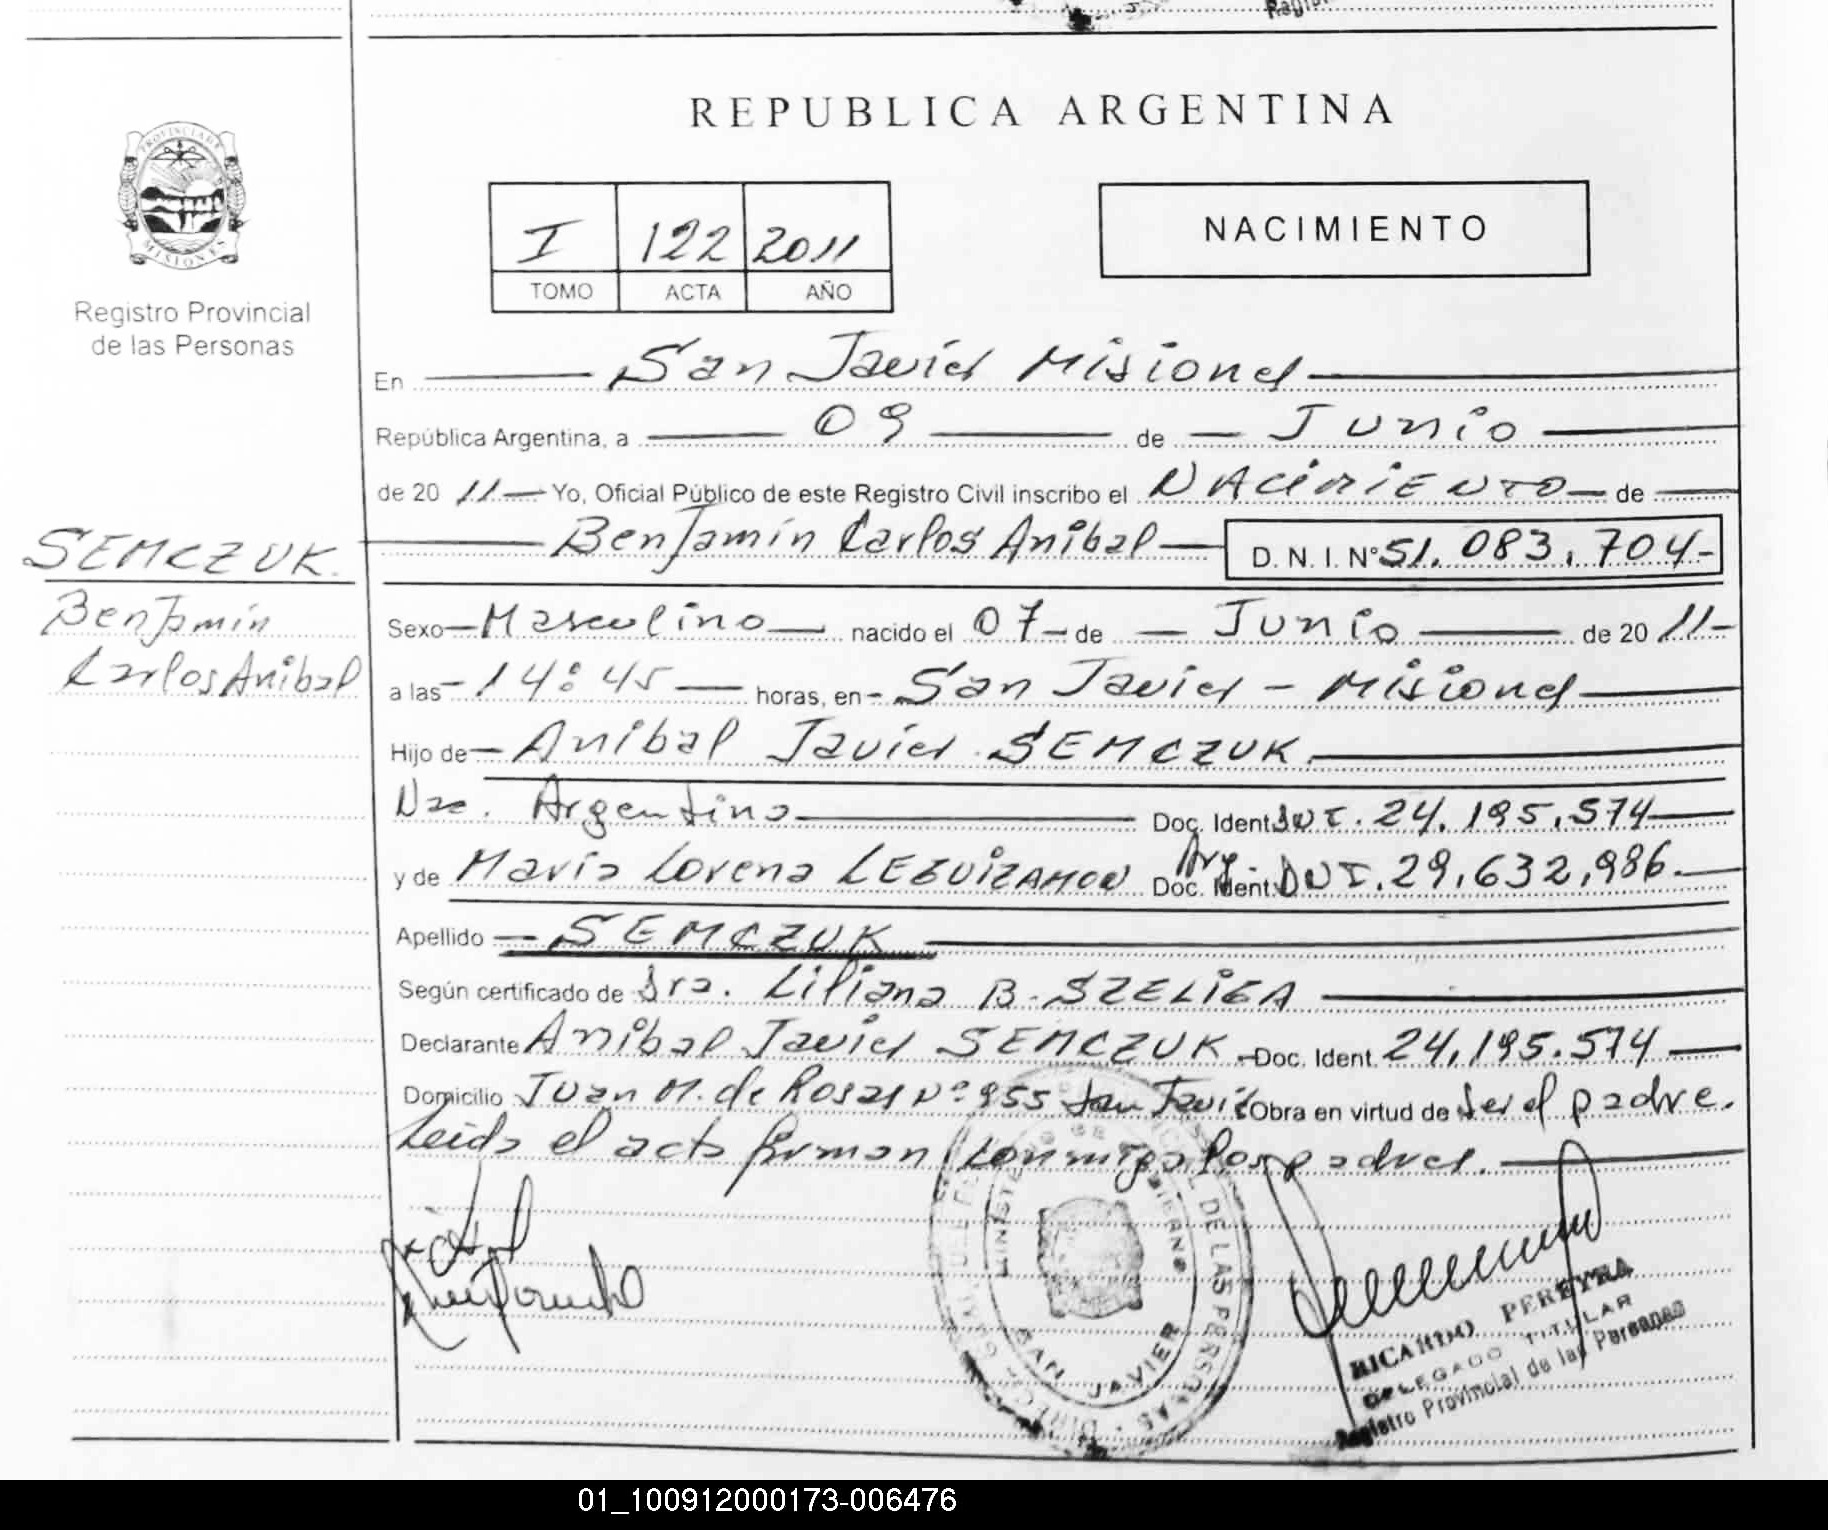 REPUBLICA ARGENTINA
PROVINCIA DE
MISIONES
Registro Provincial
de las Personas
I 122 2011
TOMO ACTA AÑO
NACIMIENTO
En San Javier Misiones
República Argentina, a 09 de Junio
de 20 11 Yo, Oficial Público de este Registro Civil inscribo el NACIMIENTO de
SEMCZUK.
Benjamín
Carlos Aníbal
Benjamín Carlos Aníbal D. N. I. N° 51.083.704-
Sexo Masculino nacido el 07 de Junio de 20 11-
a las 14:45 horas, en San Javier - Misiones
Hijo de Anibal Javier SEMCZUK
Nac. Argentino Doc. Ident. DNI. 24.195.574
y de María Lorena LEGUIZAMON Arg. Doc. Ident. DNI. 29.632.986.
Apellido SEMCZUK
Según certificado de Dra. Liliana B. SZELIGA
Declarante Anibal Javier SEMCZUK Doc. Ident. 24.195.574
Domicilio Juan M. de Rosas N° 955 San Javier Obra en virtud de ser el padre.
Leida el acta firman conmigo los padres.
SAN JAVIER
RICARDO PEREYRA
DELEGADO TITULAR
Registro Provincial de las Personas
01_100912000173-006476